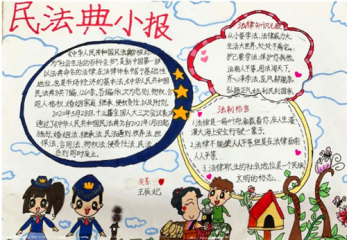 民法典小报
《中华人民共和国民法典》被称
为"社会生活的百科全书",是新中国第一部
以法典命名的法律,在法律体系中居于基础性
地位,也是市场经济的基本法。《中华人民共和国
民法典》共7编、1260条,各编依次为总则、物权、合
同、人格权、婚姻家庭、继承、侵权责任,以及附则。
2020年5月28日,十三届全国人大三次会议表决
通过了《中华人民共和国民法典》,自2021年1月1日起
施行。婚姻法、继承法、民法通则、收养法、担
保法、合同法、物权法、侵权责任法、民法
总则同时废止。
法律知识儿歌
从小要学法,法律威力大
生活大世界,处处不离它。
法制格言
1.法律是一座灯塔
2.法律不能使人人平等,但是在法律面前
人人平等。
3.法律职业的社会地位是一个民族
文明的标志。